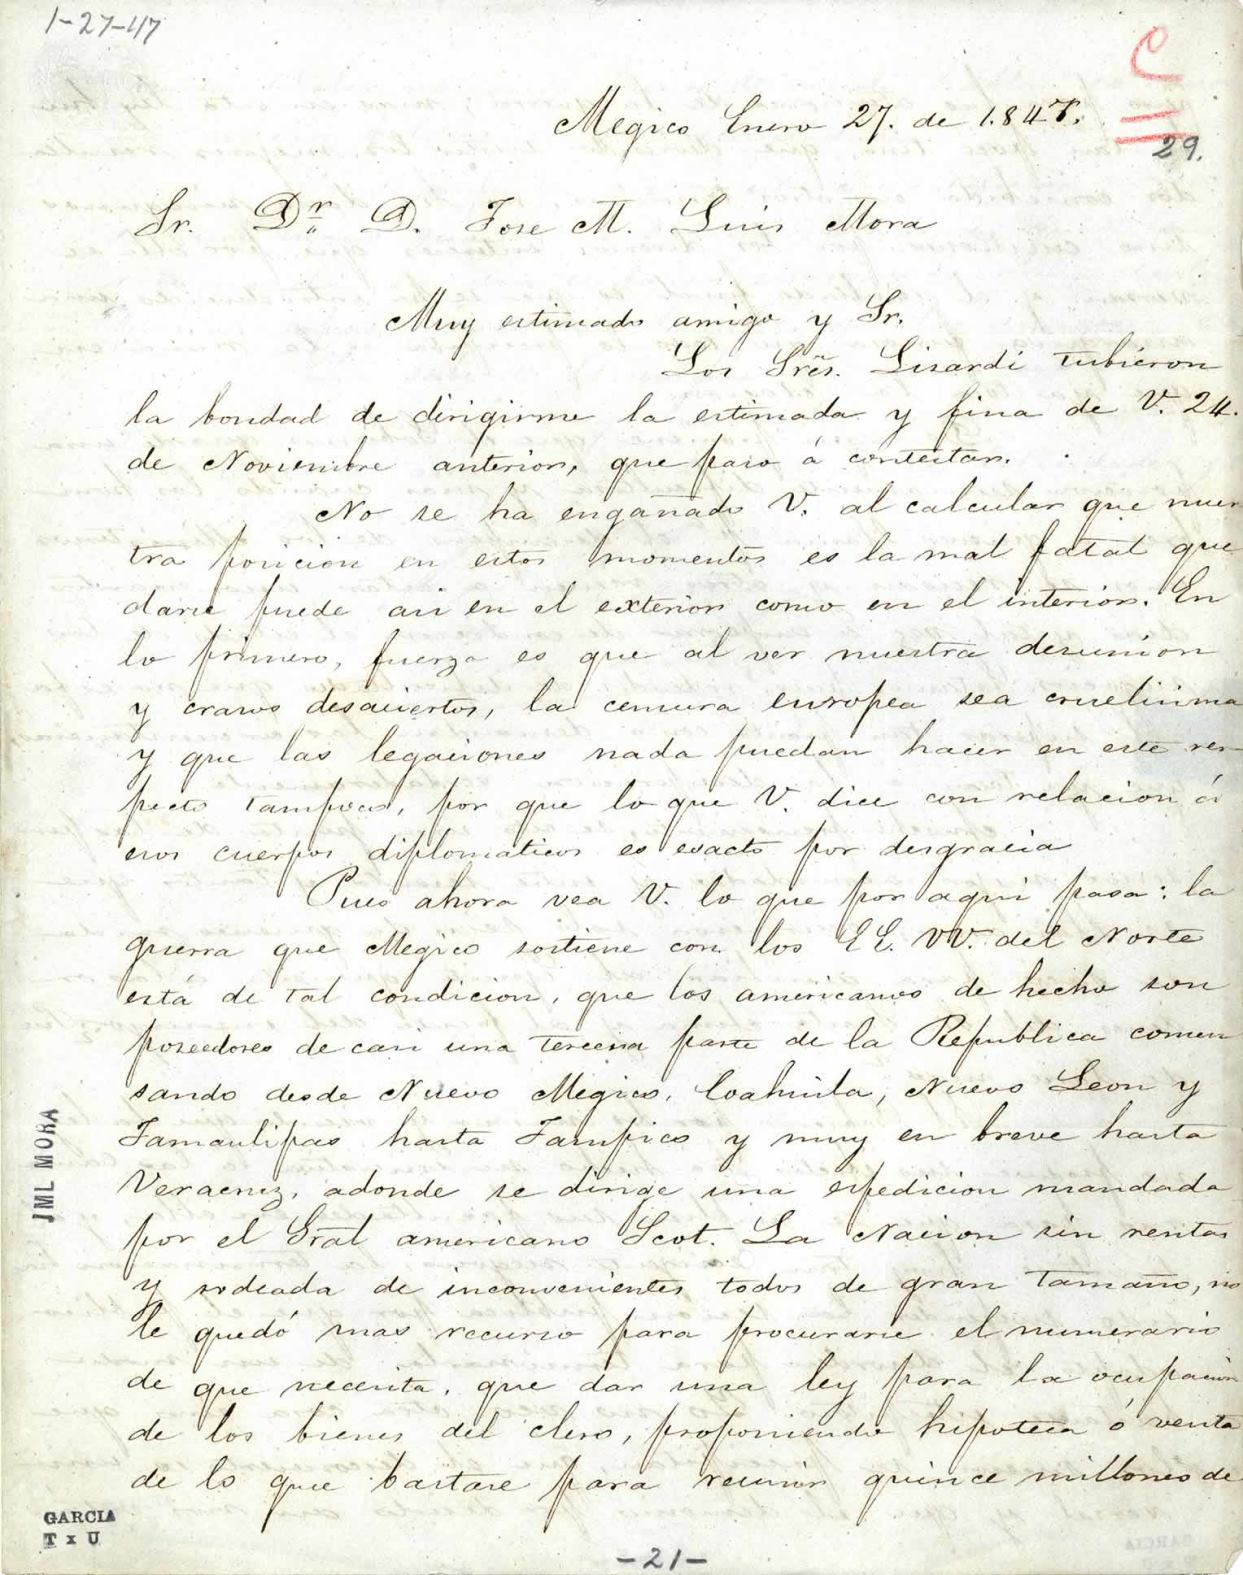 1-27-47
C
Megico Enero 27. de 1.847.
29.
Sr. Dr. D. Jose M. Luis Mora
Muy estimado amigo y Sr.
Los Sres. Lisardi tubieron
la bondad de dirigirme la estimada y fina de V. 24.
de Noviembre anterior, que paso á contestar.
No se ha engañado V. al calcular que nues
tra posicion en estos momentos es la mas fatal que
darse puede asi en el exterior como en el interior. En
lo primero, fuerza es que al ver nuestra desunion
y crasos desaciertos, la censura europea sea cruelisima
y que las legaciones nada puedan hacer en este res
pecto tampoco, por que lo que V. dice con relacion á
esos cuerpos diplomaticos es esacto por desgracia
Pues ahora vea V. lo que por aqui pasa: la
guerra que Megico sostiene con los EE. VV. del Norte
está de tal condicion, que los americanos de hecho son
poseedores de casi una tercera parte de la Republica comen
sando desde Nuevo Megico, Coahuila, Nuevo Leon y
Tamaulipas hasta Tampico y muy en breve hasta
Veracruz, adonde se dirige una espedicion mandada
por el Gral americano Scot. La Nacion sin rentas
y rodeada de inconvenientes todos de gran tamaño, no
le quedó mas recurso para procurarse el numerario
de que necesita, que dar una ley para la ocupacion
de los bienes del clero, proponiendo hipoteca ó venta
de lo que bastase para reunir quince millones de
JML MORA
GARCIA
T x U
-21-